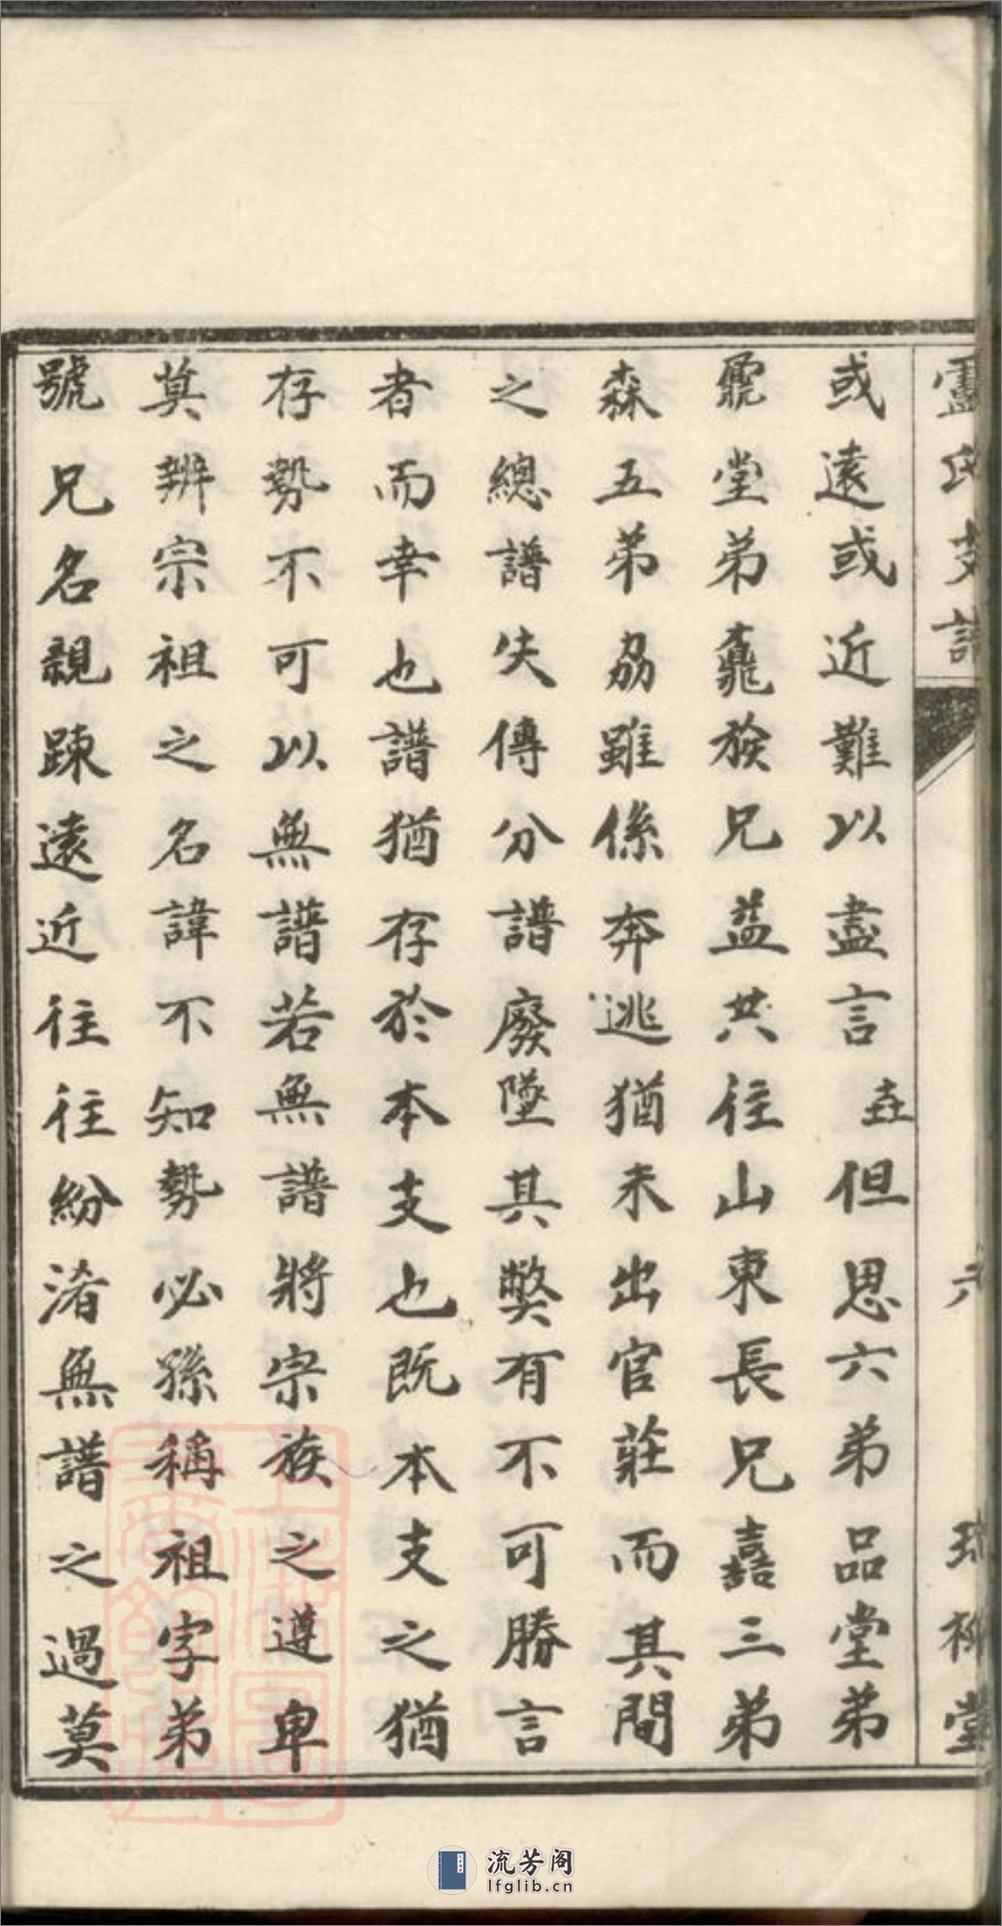 盧氏支譜
六
堂
或遠或近難以盡言　壵但思六弟品堂弟
堂弟族兄益共往山東長兄嘉三弟
森五弟劦雖係奔逃猶未出官莊而其間
之總譜失傳分譜廢墜其弊有不可勝言
者而幸也譜猶存於本支也既本支之猶
存勢不可以無譜若無譜將宗族之遵卑
莫辨宗祖之名諱不知勢必孫稱祖字弟
號兄名親踈遠近往往紛淆無譜之過莫
流芳阁
lfglib.cn